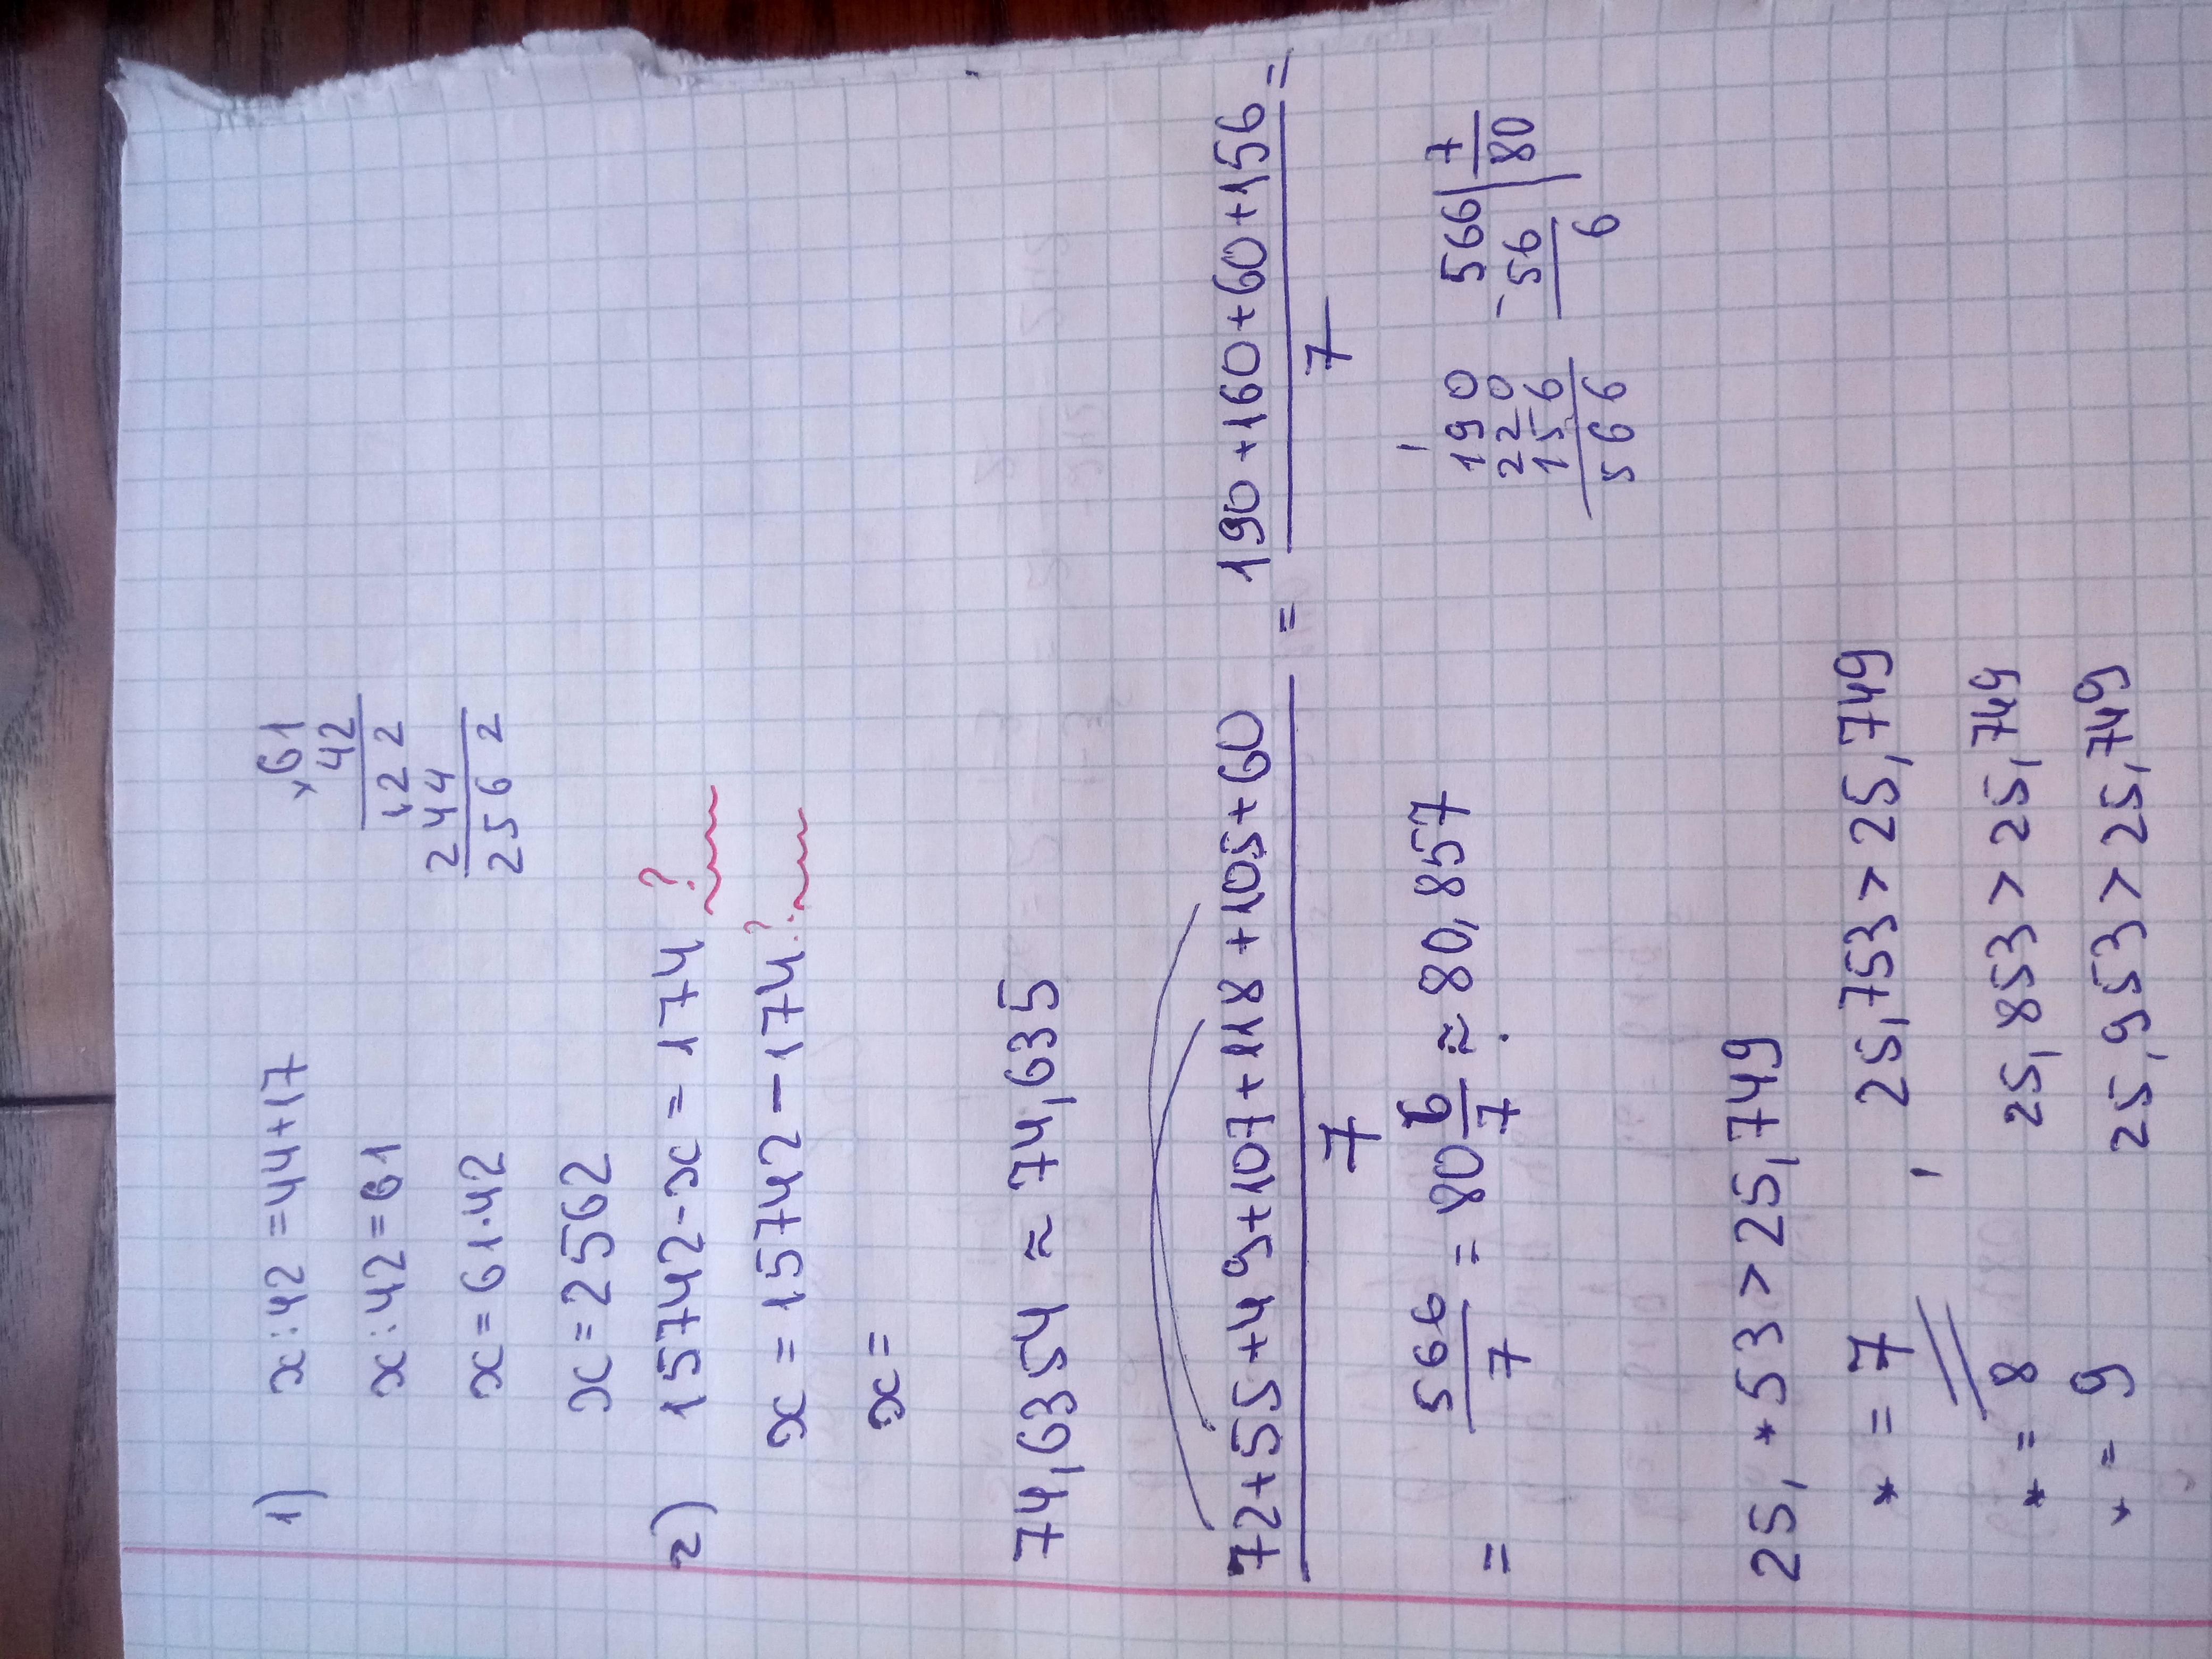 1) x : 42 = 44 + 17
x : 42 = 61
x = 61 · 42
x = 2562
× 61
42
122
244
2562
2) 15742 - x = 174 ?
x = 15742 - 174 ?
x =
74,6354 ≈ 74,635
72 + 55 + 49 + 107 + 118 + 105 + 60 = 190 + 160 + 60 + 156 =
7 7
= 566/7 = 80 6/7 ≈ 80,857
1
190
220
156
566
566 | 7
- 56 | 80
6
25, * 53 > 25,749
* = 7 , 25,753 > 25,749
* = 8 25,853 > 25,749
* = 9 25,953 > 25,749